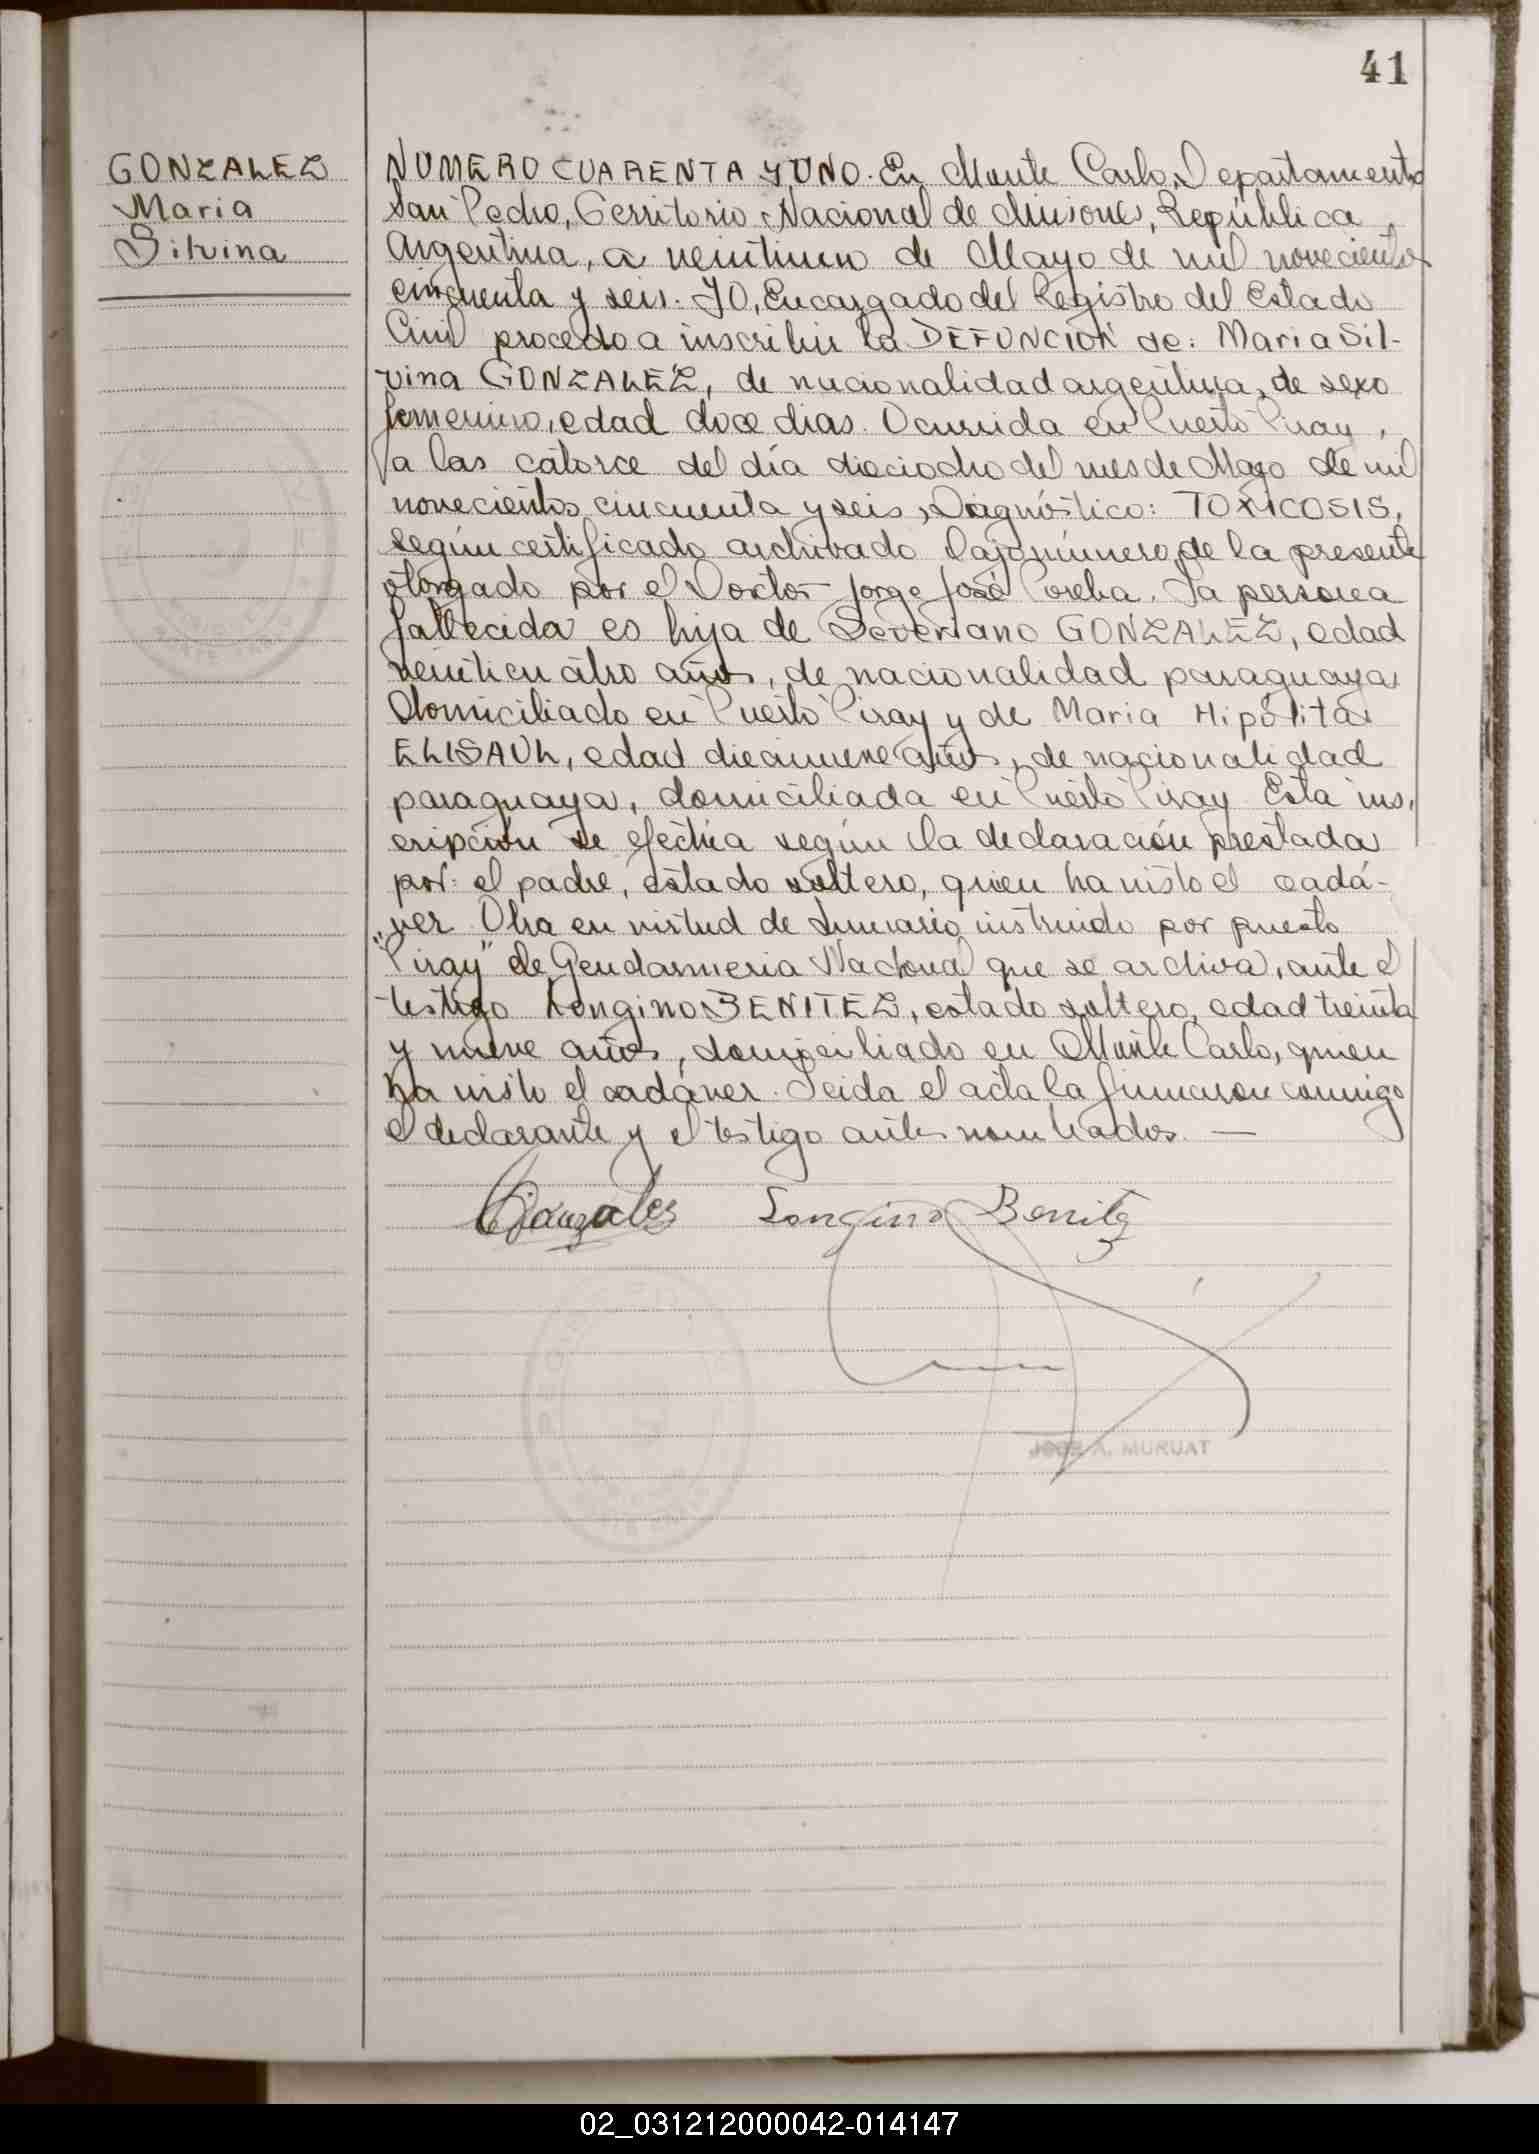 41
GONZALEZ
Maria
Silvina
NUMERO CUARENTA Y UNO. En Monte Carlo, Departamento
San Pedro, Territorio Nacional de Misiones, República
Argentina, a veintiuno de Mayo de mil novecientos
cincuenta y seis. YO, Encargado del Registro del Estado
Civil procedo a inscribir la DEFUNCION de: Maria Sil-
vina GONZALEZ, de nacionalidad argentina, de sexo
femenino, edad doce dias. Ocurrida en Puerto Piray,
a las catorce del día dieciocho del mes de Mayo de mil
novecientos cincuenta y seis, Diagnóstico: TOXICOSIS,
según certificado archivado bajo número de la presente
otorgado por el Doctor Jorge José. La persona
fallecida es hija de Severiano GONZALEZ, edad
veinticuatro años, de nacionalidad paraguaya
domiciliado en Puerto Piray y de Maria Hipólita
ELISAUL, edad diecinueve años, de nacionalidad
paraguaya, domiciliada en Puerto Piray. Esta ins-
cripción se efectúa según la declaración prestada
por: el padre, estado soltero, quien ha visto el cadá-
ver. Obra en virtud de sumario instruido por puesto
"Piray" de Gendarmeria Nacional que se archiva, ante el
testigo Longino BENITEZ, estado soltero, edad treinta
y nueve años, domiciliado en Monte Carlo, quien
ha visto el cadáver. Leida el acta la firmaron conmigo
el declarante y el testigo antes nombrados. —
Gonzales Longino Benitez
A. MURUAT
02_031212000042-014147